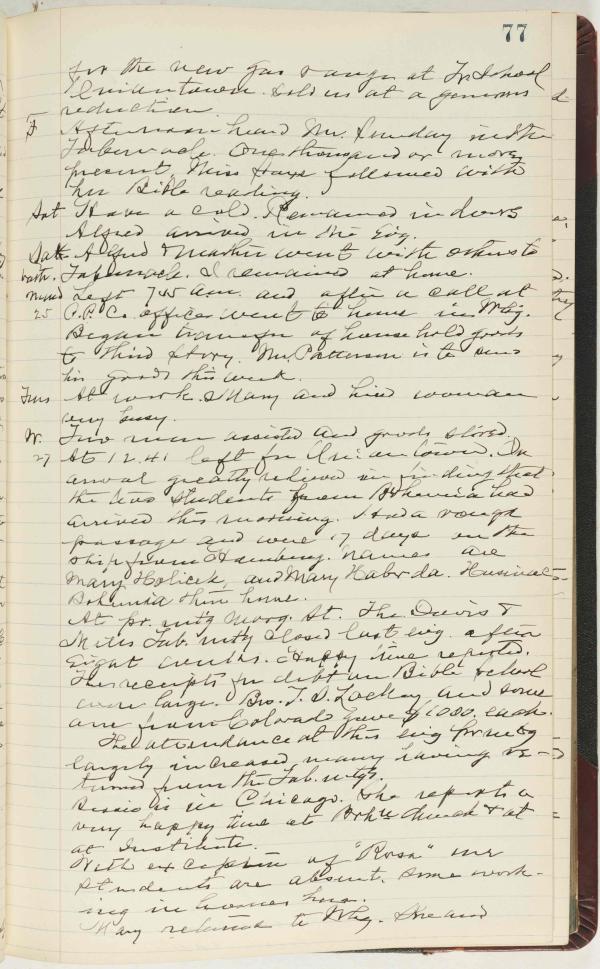 77
for the new gas range at Tr. School
Uniontown. Sold us at a generous
reduction.
F Afternoon heard Mr. Sunday in the
Tabernacle. One thousand or more
present. Miss Saxe followed with
her Bible reading.
Sat Have a cold. Remained in doors
Alfred arrived in the Evg.
Sabbath. Alfred & Martin went with others to
Tabernacle. I remained at home.
Mond 25 Left 7.45 a.m. and after a call at
P.P. Co. office went to house in Wkg.
Began transfer of household goods
to third Story. Mr. Patterson is to
his goods this week.
Tues At work. Mary and hired woman
very busy.
W. 27 Two men assisted and goods stored.
At 12.41 left for Uniontown. On
arrival greatly relieved in finding that
the two students from Bohemia had
arrived this morning. Had a rough
passage and were 17 days on the
ship from Hamburg. Names are
Mary Holicek, and Mary Haborda. Husinec
Bohemia their home.
At pr. mtg Morg. St. The Davis &
Mills Tab. mtg closed last evg. after
Eight weeks. Happy time reported.
The receipts for debt on Bible School
were large. Bro. T. S. Lackey and some
one from Colorado gave $1000. each.
The attendance at this evg pr mtg
largely increased many having re-
turned from the Tab. mtgs.
Bessie is in Chicago. She reports a
very happy time at Boh'n Church & at
at Institute.
With exception of "Rosa" our
Students are absent. Some work-
ing in homes here.
Mary returned to Wkg. She and